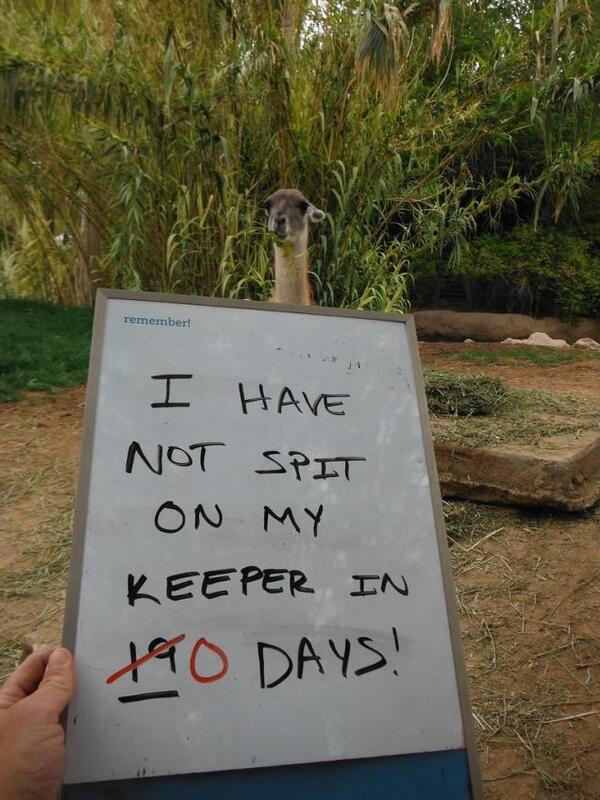 remember!
I HAVE
NOT SPIT
ON MY
KEEPER IN
19 0 DAYS!